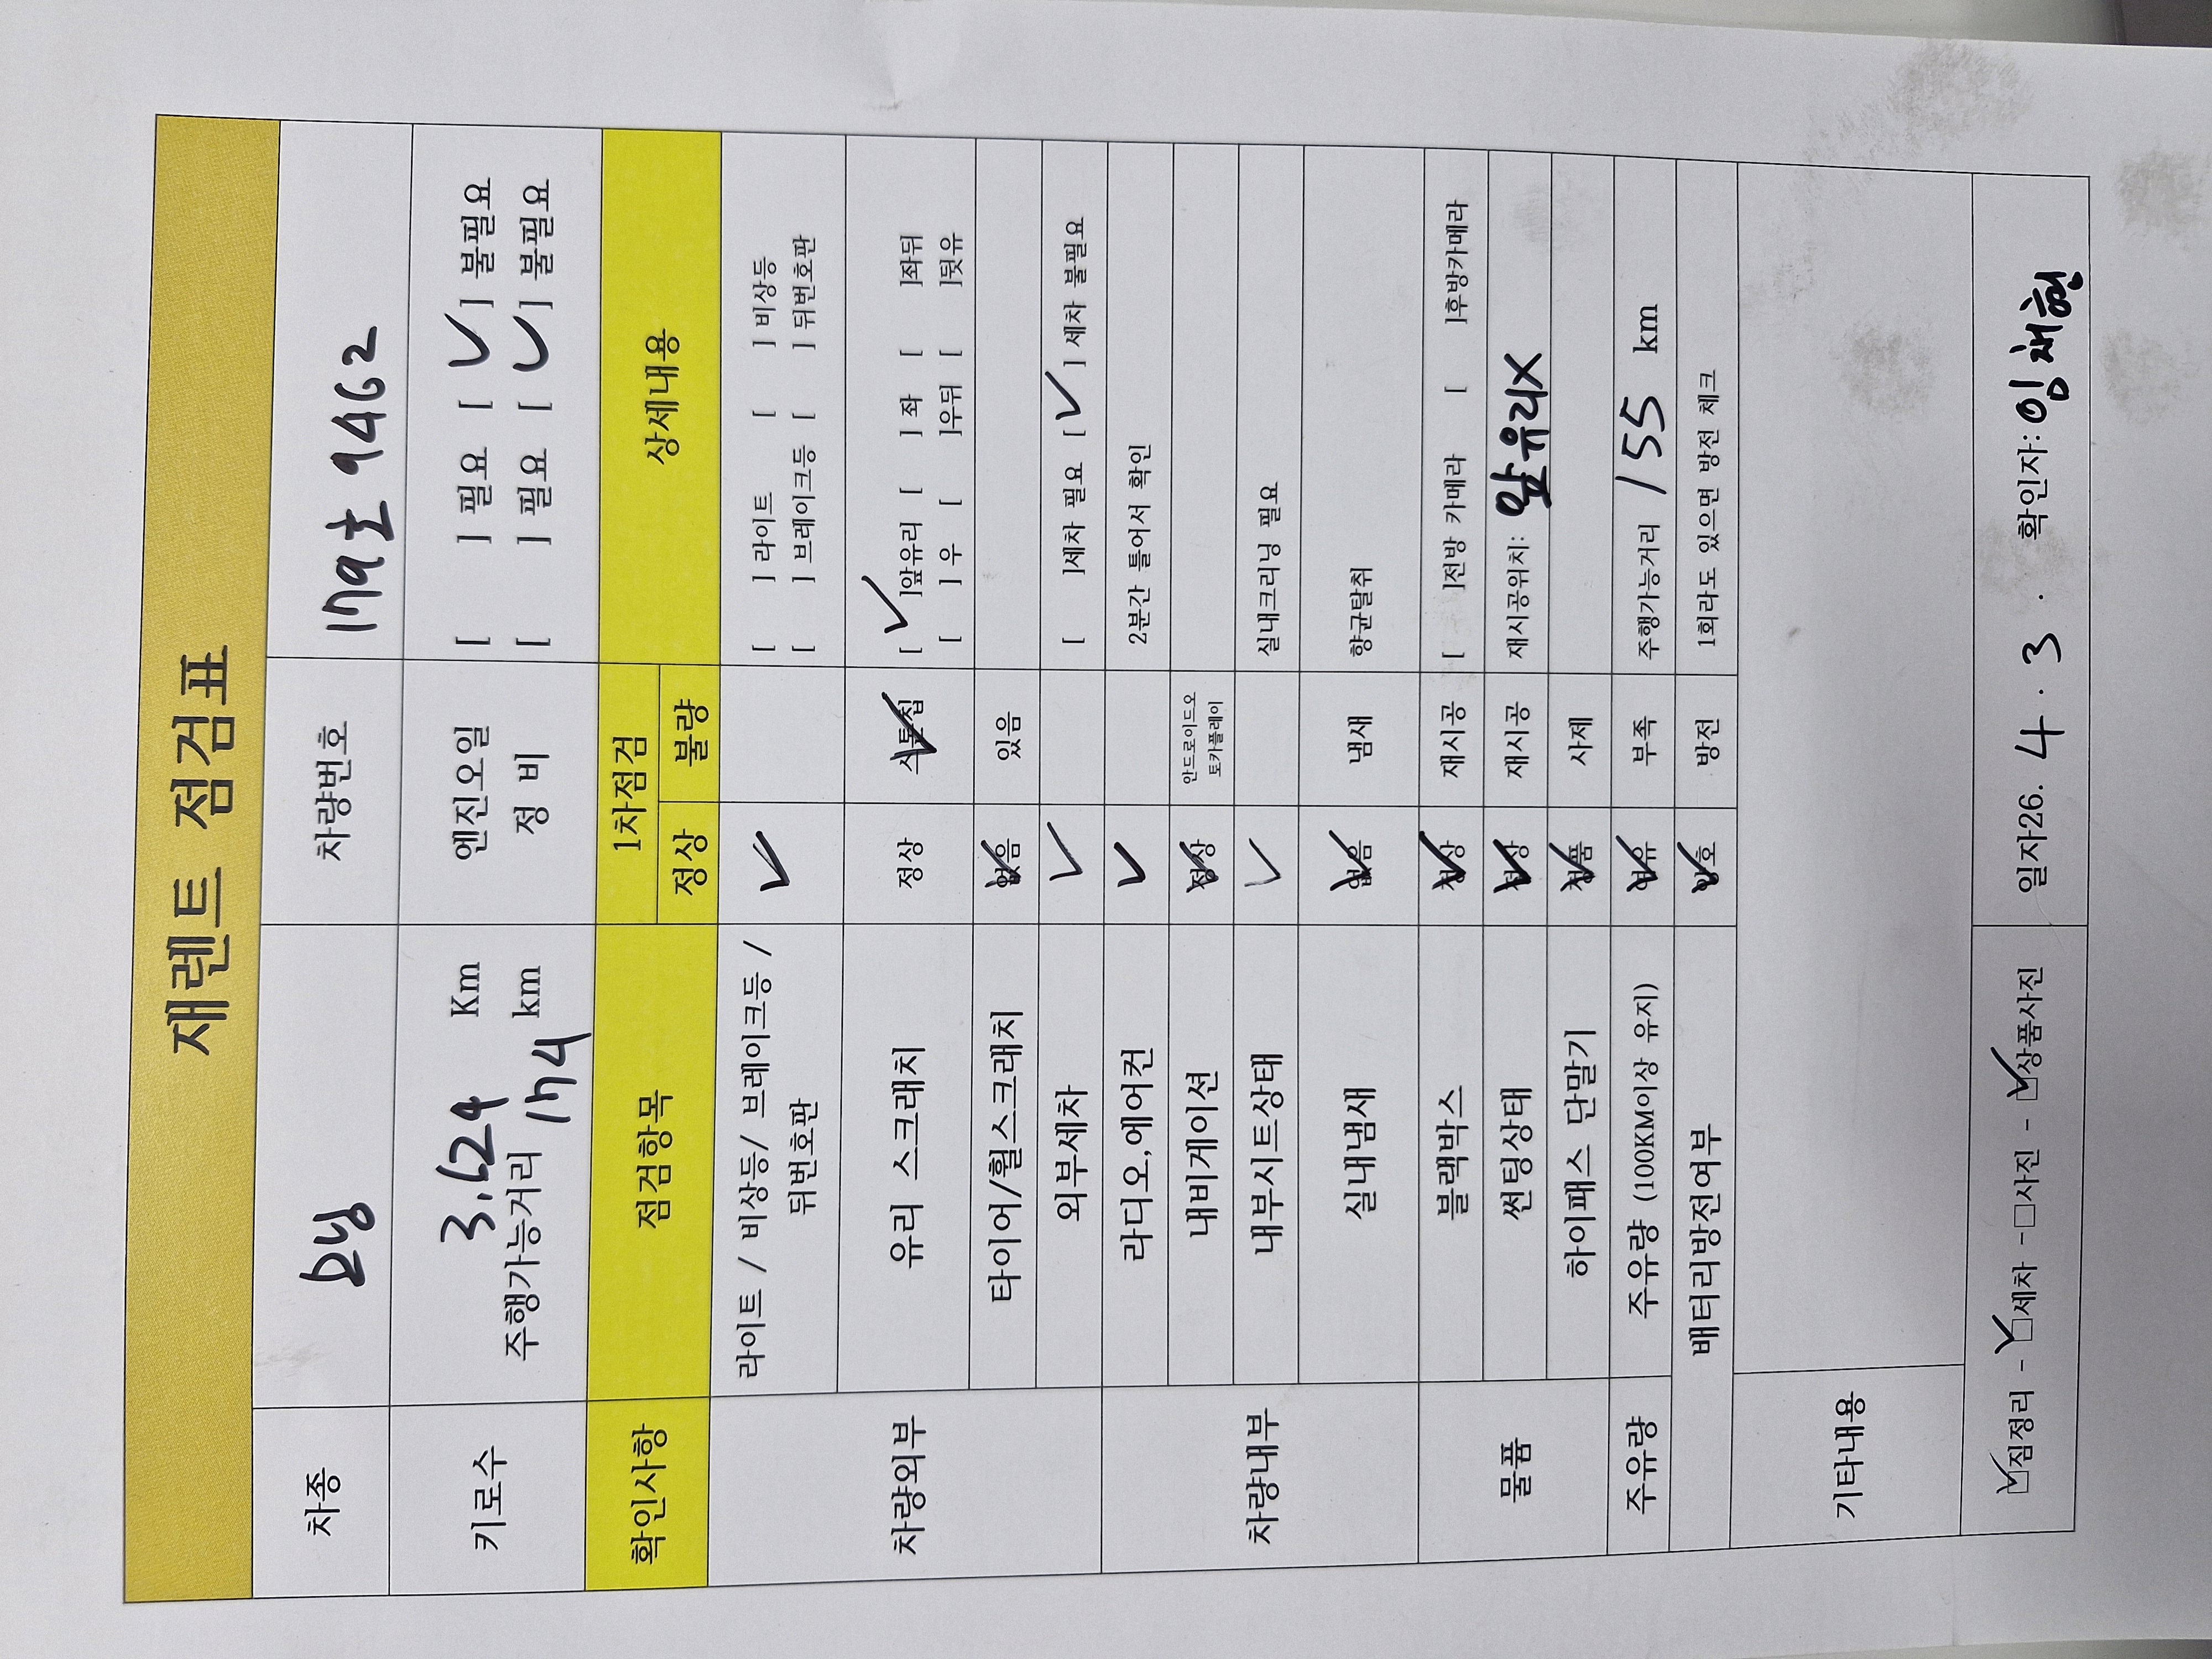 재렌트 점검표
차종 모닝 차량번호 179호 9462
키로수 3,624 Km 엔진오일 [ ] 필요 [ ✓ ] 불필요
주행가능거리 174 km 정 비 [ ] 필요 [ ✓ ] 불필요
확인사항 점검항목 1차점검 상세내용
정상 불량
차량외부 라이트 / 비상등/ 브레이크등 / ✓ [ ] 라이트 [ ] 비상등
뒤번호판 [ ] 브레이크등 [ ] 뒤번호판
유리 스크래치 정상 스톤칩 ✓ [ ✓ ]앞유리 [ ] 좌 [ ]좌뒤
[ ] 우 [ ]우뒤 [ ]뒷유
타이어/휠스크래치 없음 ✓ 있음
외부세차 ✓ [ ]세차 필요 [ ✓ ] 세차 불필요
차량내부 라디오,에어컨 ✓ 2분간 틀어서 확인
내비게이션 정상 ✓ 안드로이드오
토카플레이
내부시트상태 ✓ 실내크리닝 필요
실내냄새 없음 ✓ 냄새 향균탈취
물품 블랙박스 정상 ✓ 재시공 [ ]전방 카메라 [ ]후방카메라
썬팅상태 정상 ✓ 재시공 재시공위치: 앞유리X
하이패스 단말기 정품 ✓ 사제
주유량 주유량 (100KM이상 유지) 여유 ✓ 부족 주행가능거리 155 km
배터리방전여부 양호 ✓ 방전 1회라도 있으면 방전 체크
기타내용
☑짐정리 - ☑세차 -□사진 - ☑상품사진 일자26. 4 . 3 . 확인자: 임채현